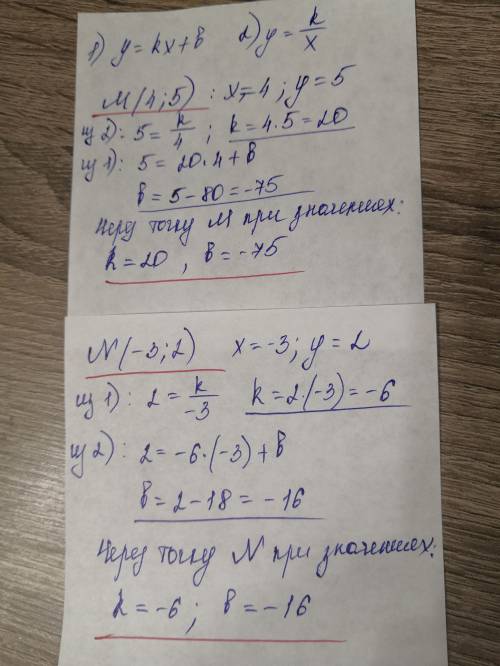 1) y = kx + b 2) y = k/x
M(4; 5) : x = 4 ; y = 5
из 2): 5 = k/4 ; k = 4·5 = 20
из 1): 5 = 20·4 + b
b = 5 - 80 = -75
Через точку M при значениях:
k = 20 , b = -75
N(-3; 2) x = -3 ; y = 2
из 1): 2 = k/-3 k = 2·(-3) = -6
из 2): 2 = -6·(-3) + b
b = 2 - 18 = -16
Через точку N при значениях:
k = -6 ; b = -16